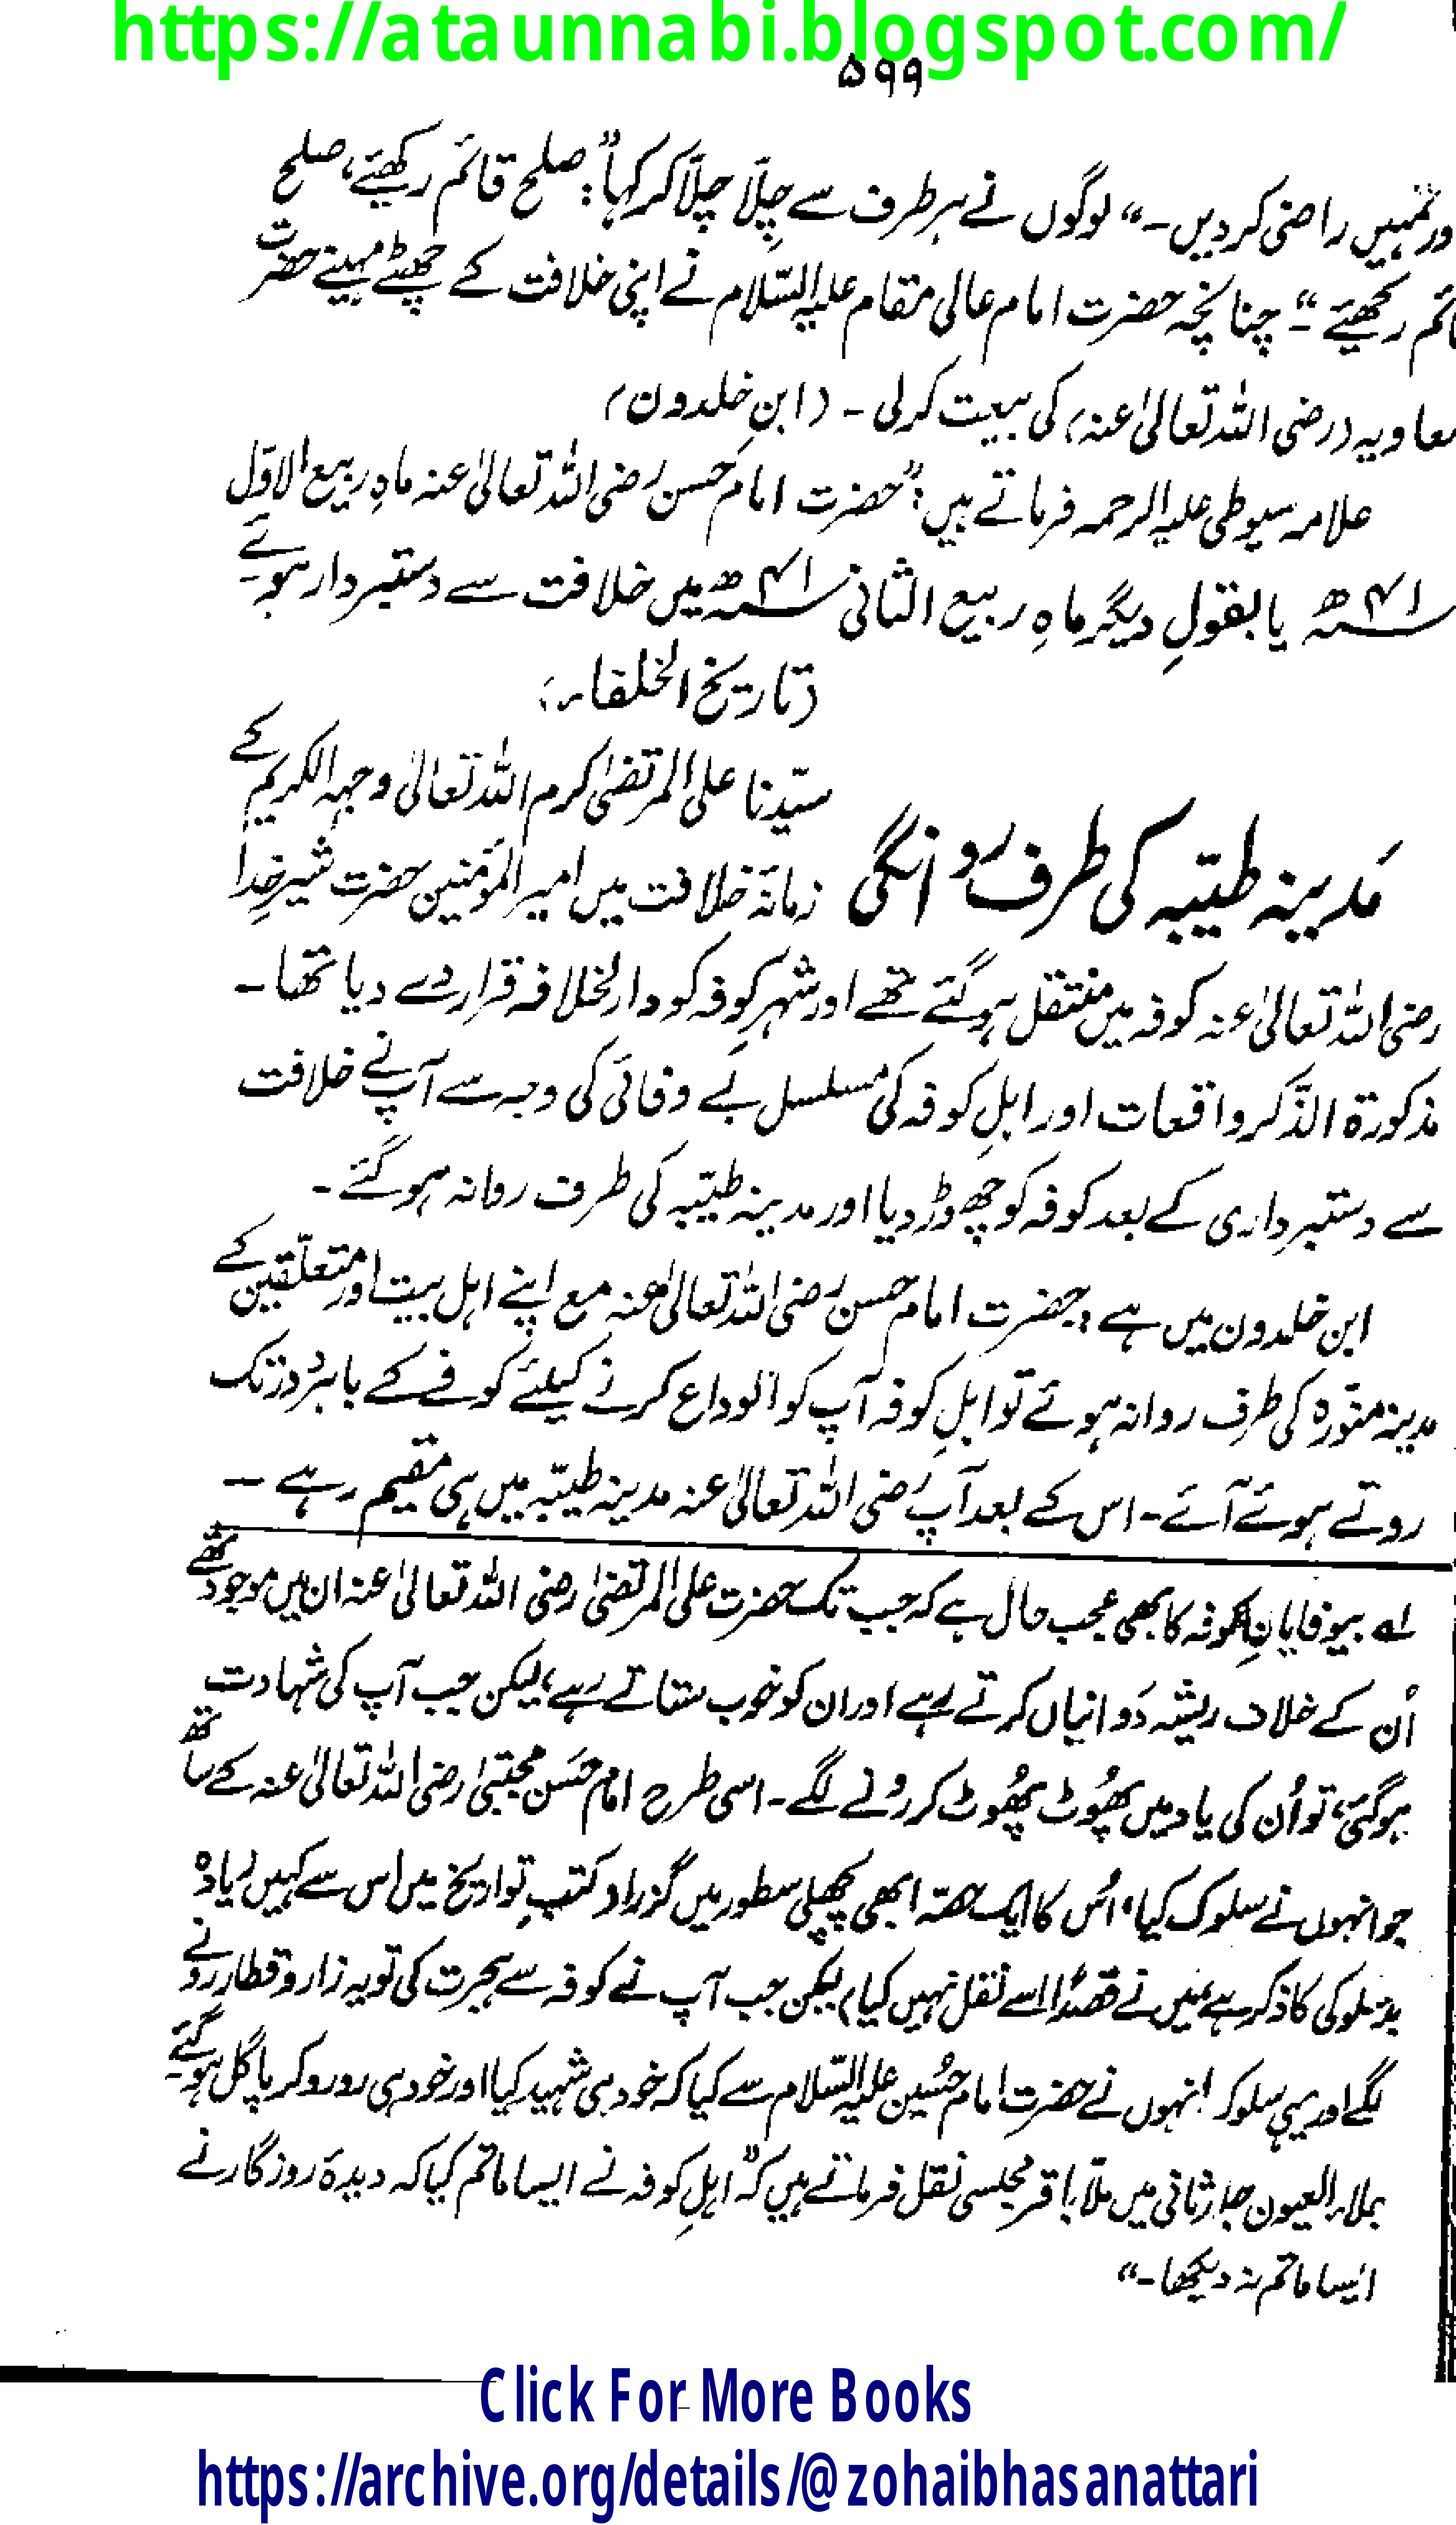 https://ataunnabi.blogspot.com/
۵۹۹
ور تمہیں راضی کر دیں۔“ لوگوں نے ہر طرف سے چِلّا چِلّا کر کہا: ”صلح قائم رکھئے، صلح
ائم رکھئے۔“ چنانچہ حضرت امام عالی مقام علیہ السّلام نے اپنی خلافت کے چھٹے مہینے حضرت
معاویہ (رضی اللہ تعالیٰ عنہ) کی بیعت کر لی۔ (ابنِ خلدون)
علامہ سیوطی علیہ الرحمہ فرماتے ہیں: ”حضرت امام حَسن رضی اللہ تعالیٰ عنہ ماہِ ربیع الاوّل
۴۱ھ یا بقولِ دیگر ماہِ ربیع الثانی ۴۱ھ میں خلافت سے دستبردار ہوئے۔
(تاریخ الخلفاء)
سیّدنا علی المرتضیٰ کرم اللہ تعالیٰ وجہہ الکریم کے
مَدینہ طیّبہ کی طرف روانگی
زمانۂ خلافت میں امیر المؤمنین حضرت شیرِ خدا
رضی اللہ تعالیٰ عنہ کوفہ میں منتقل ہو گئے تھے اور شہرِ کوفہ کو دار الخلافہ قرار دے دیا تھا۔
مذکورۃ الذّکر واقعات اور اہلِ کوفہ کی مسلسل بے وفائی کی وجہ سے آپ نے خلافت
سے دستبرداری کے بعد کوفہ کو چھوڑ دیا اور مدینہ طیّبہ کی طرف روانہ ہو گئے۔
ابن خلدون میں ہے: حضرت امام حسن رضی اللہ تعالیٰ عنہ مع اپنے اہل بیت اور متعلّقین کے
مدینہ منوّرہ کی طرف روانہ ہوئے تو اہلِ کوفہ آپ کو الوداع کرنے کیلئے کوفے کے باہر دُور تک
روتے ہوئے آئے۔ اس کے بعد آپ رضی اللہ تعالیٰ عنہ مدینہ طیّبہ میں ہی مقیم رہے ۔
لہ بیوفایانِ کوفہ کا بھی عجب حال ہے کہ جب تک حضرت علی المرتضیٰ رضی اللہ تعالیٰ عنہ ان میں موجود تھے
اُن کے خلاف ریشہ دَوانیاں کرتے رہے اور ان کو خوب ستاتے رہے، لیکن جب آپ کی شہادت
ہو گئی، تو اُن کی یاد میں پھُوٹ پھُوٹ کر رونے لگے۔ اسی طرح امام حَسَن مجتبیٰ رضی اللہ تعالیٰ عنہ کے ساتھ
جو انہوں نے سلوک کیا، اُس کا ایک حصّہ ابھی پچھلی سطور میں گزرا (و کتبِ تواریخ میں اس سے کہیں زیادہ
بدسلوکی کا ذکر ہے مَیں نے قصدًا اسے نقل نہیں کیا) لیکن جب آپ نے کوفہ سے ہجرت کی تو یہ زار و قطار رونے
لگے اور یہی سلوک انہوں نے حضرت امام حُسین علیہ السّلام سے کیا کہ خود ہی شہید کیا اور خود ہی رو رو کر پاگل ہو گئے۔
جلاء العیون جلد ثانی میں ملّا باقر مجلسی نقل فرماتے ہیں کہ ”اہلِ کوفہ نے ایسا ماتم کیا کہ دیدۂ روزگار نے
ایسا ماتم نہ دیکھا۔“
Click For More Books
https://archive.org/details/@zohaibhasanattari